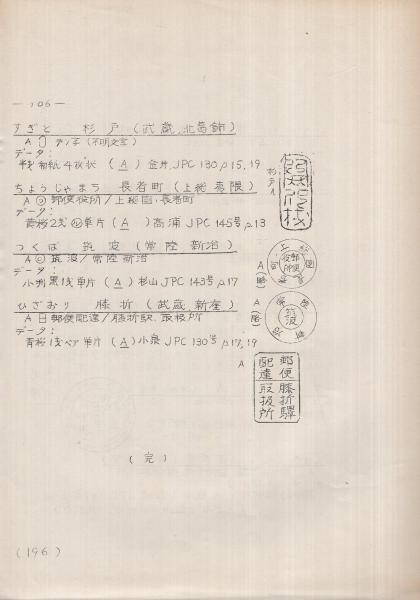 — 106 —
すぎと 杉戸 (武蔵、北葛飾)
A (不明文字)
データ:
半銭和紙4枚状 (A) 金井、JPC 130 p15,19
ちょうじゃまち 長者町 (上総 夷隅)
A 郵便役所/上総国、長者町
データ:
青桜2銭 単片 (A) 高浦 JPC 145号 p13
つくば 筑波 (常陸 新治)
A 筑波/常陸 新治
データ:
小判黒1銭単片 (A) 杉山 JPC 143号 p17
ひざおり 膝折 (武蔵、新座)
A 郵便配達/膝折駅、取扱所
データ:
青桜1銭ペア単片 (A) 小泉 JPC 130号 p17,19
杉戸A
A (略)
A (略)
筑波
A
郵便 膝折驛
配達 取扱所
(完)
(196)